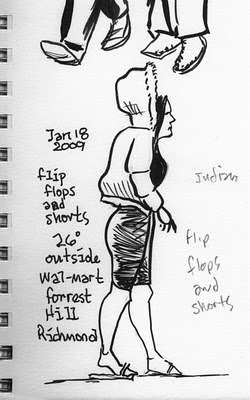 Jan 18
2009
flip
flops
and
shorts
26°
outside
Wal-mart
forrest
Hill
Richmond
Indian
flip
flops
and
shorts